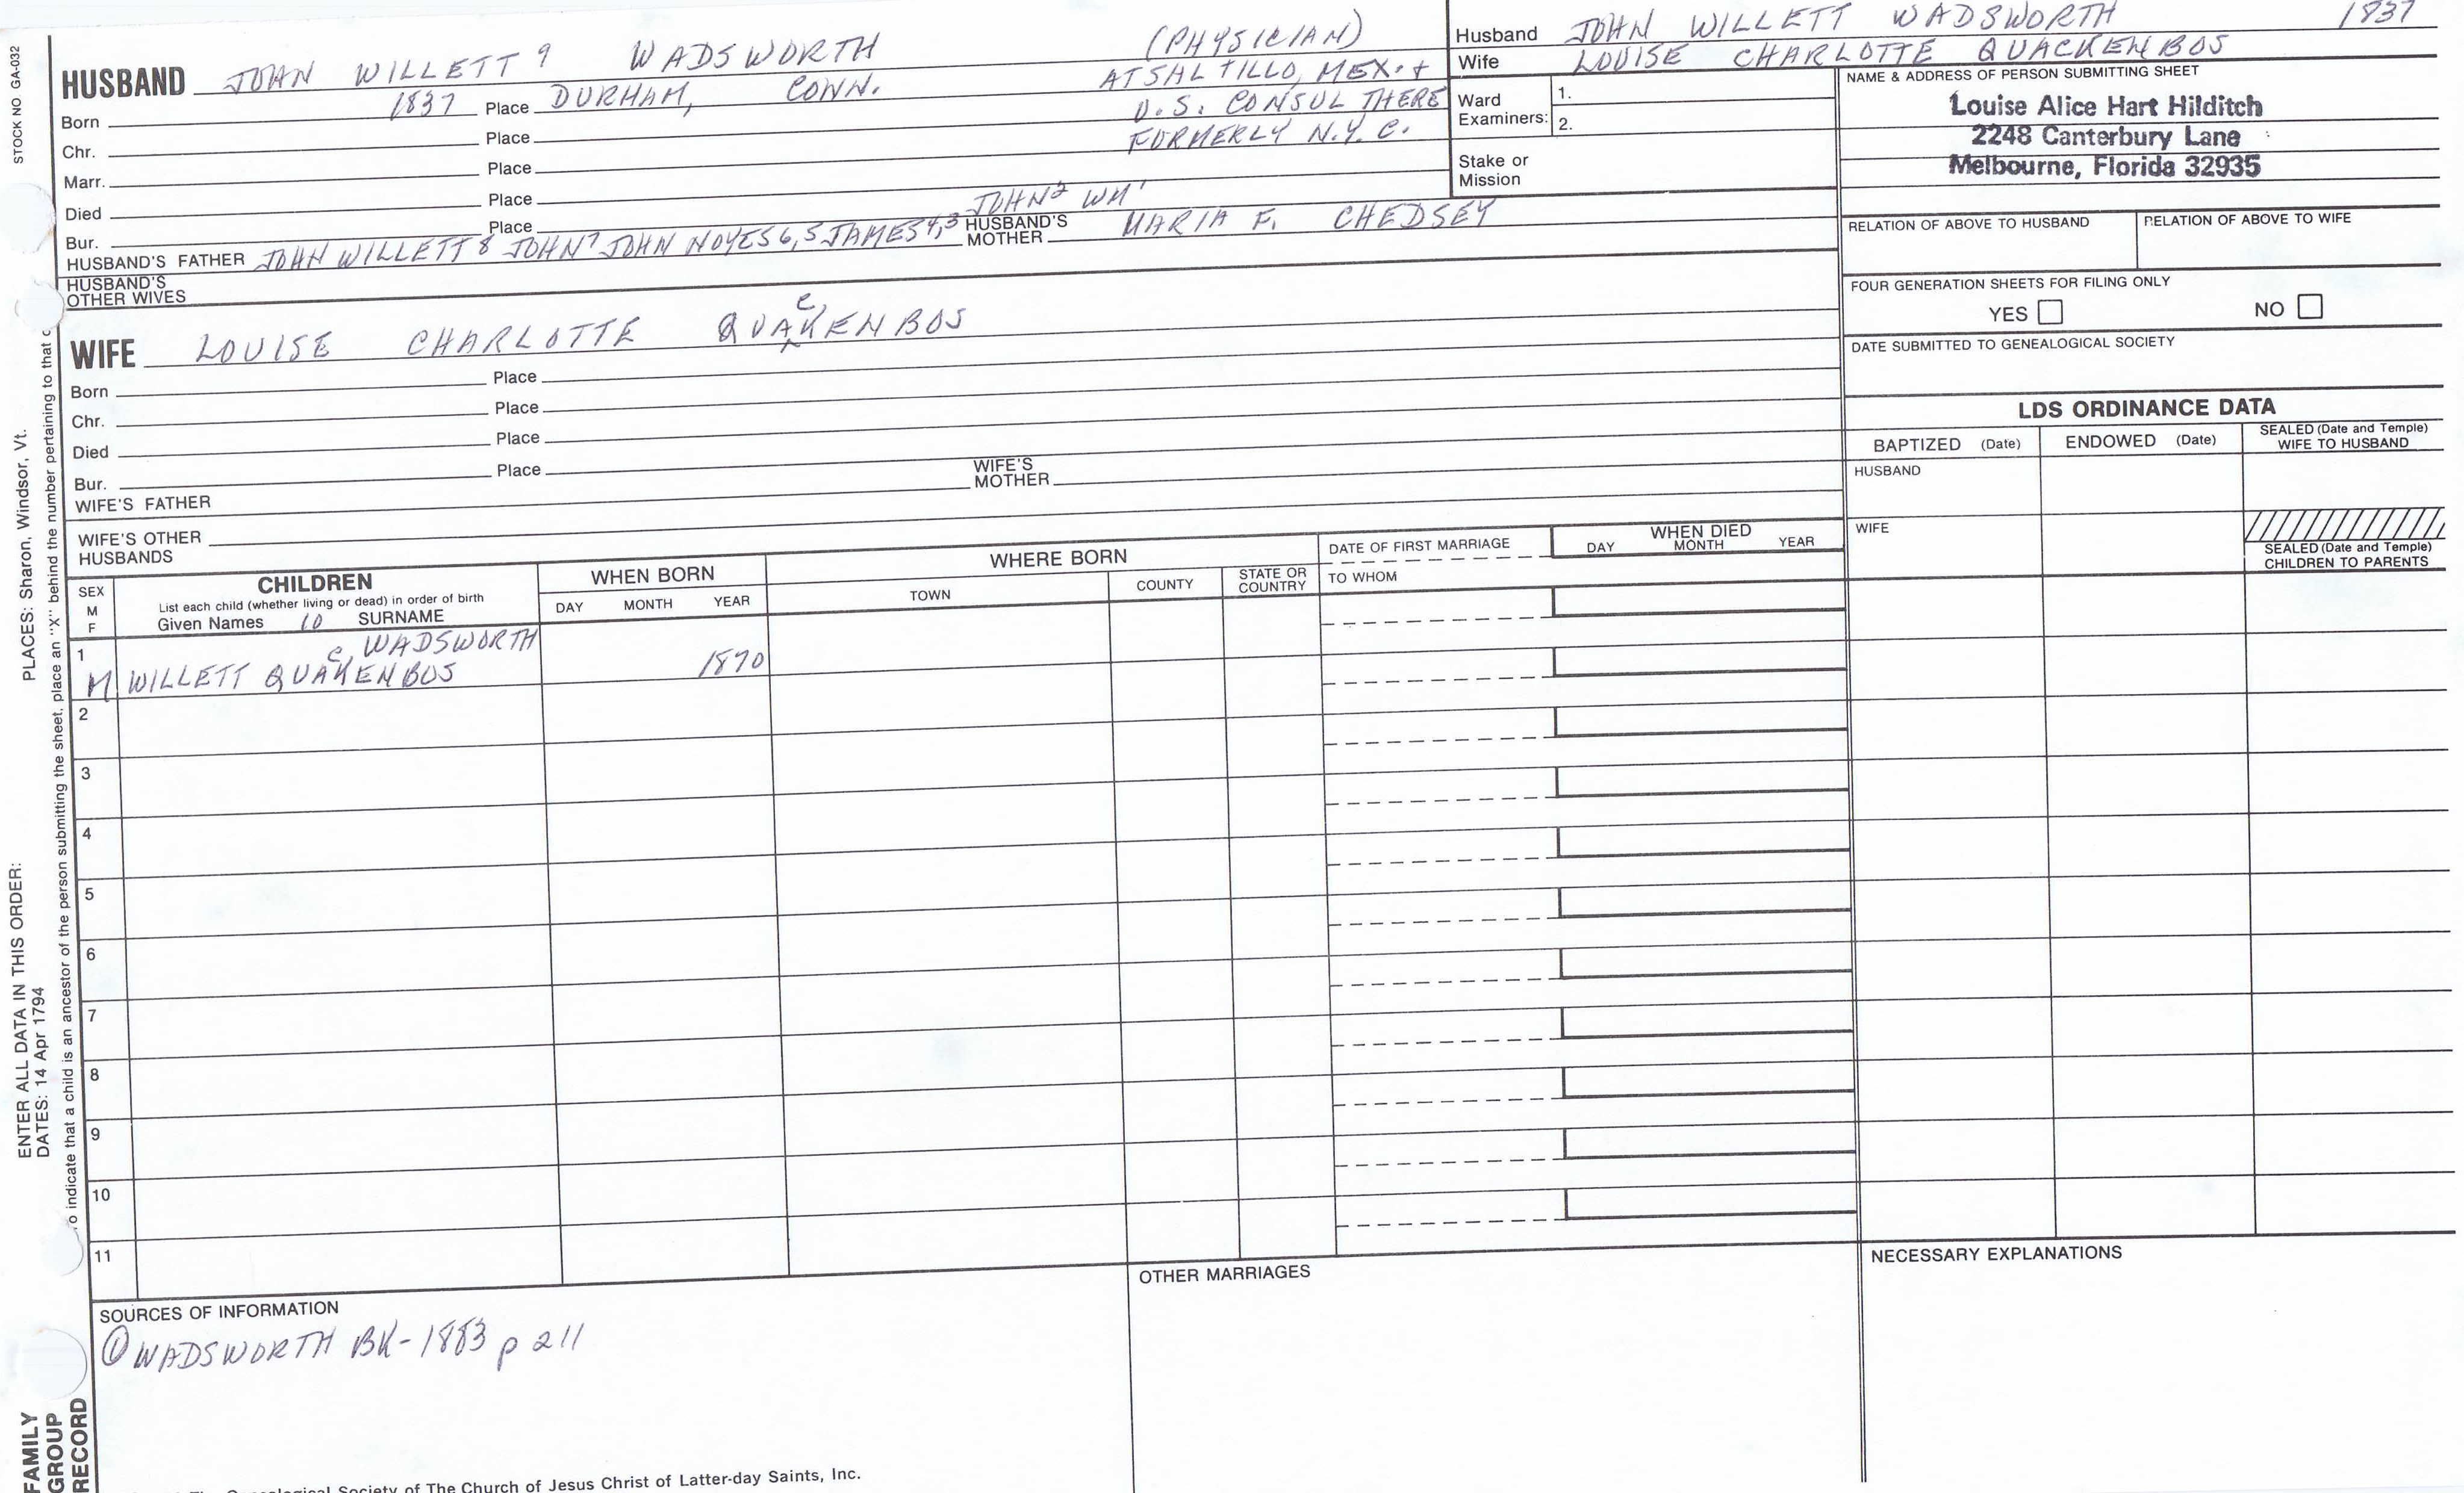 STOCK NO GA-032
HUSBAND JOHN WILLETT 9 WADSWORTH (PHYSICIAN)
Born 1837 Place DURHAM, CONN. AT SALTILLO, MEX. +
Chr. Place U.S. CONSUL THERE
Marr. Place FORMERLY N.Y.C.
Died Place
Bur. Place JOHN2 WM1
HUSBAND'S FATHER JOHN WILLETT 8 JOHN7 JOHN NOYES6,5 JAMES4,3 HUSBAND'S MOTHER MARIA F. CHEDSEY
HUSBAND'S OTHER WIVES
Husband JOHN WILLETT WADSWORTH 1837
Wife LOUISE CHARLOTTE QUACKENBOS
Ward Examiners: 1.
2.
Stake or Mission
NAME & ADDRESS OF PERSON SUBMITTING SHEET
Louise Alice Hart Hilditch
2248 Canterbury Lane
Melbourne, Florida 32935
RELATION OF ABOVE TO HUSBAND RELATION OF ABOVE TO WIFE
FOUR GENERATION SHEETS FOR FILING ONLY
YES NO
DATE SUBMITTED TO GENEALOGICAL SOCIETY
WIFE LOUISE CHARLOTTE QUACKENBOS
Born Place
Chr. Place
Died Place
Bur. Place
WIFE'S FATHER WIFE'S MOTHER
WIFE'S OTHER HUSBANDS
LDS ORDINANCE DATA
BAPTIZED (Date) ENDOWED (Date) SEALED (Date and Temple) WIFE TO HUSBAND
HUSBAND
WIFE
SEALED (Date and Temple) CHILDREN TO PARENTS
SEX M F
CHILDREN
List each child (whether living or dead) in order of birth
Given Names 10 SURNAME
WHEN BORN
DAY MONTH YEAR
WHERE BORN
TOWN COUNTY STATE OR COUNTRY
DATE OF FIRST MARRIAGE
TO WHOM
WHEN DIED
DAY MONTH YEAR
1 WADSWORTH
M WILLETT QUACKENBOS 1870
2
3
4
5
6
7
8
9
10
11
SOURCES OF INFORMATION
① WADSWORTH BK-1883 p 211
OTHER MARRIAGES
NECESSARY EXPLANATIONS
Society of The Church of Jesus Christ of Latter-day Saints, Inc.
PLACES: Sharon, Windsor, Vt.
ENTER ALL DATA IN THIS ORDER:
DATES: 14 Apr 1794
indicate that a child is an ancestor of the person submitting the sheet, place an "X" behind the number pertaining to that
FAMILY
GROUP
RECORD